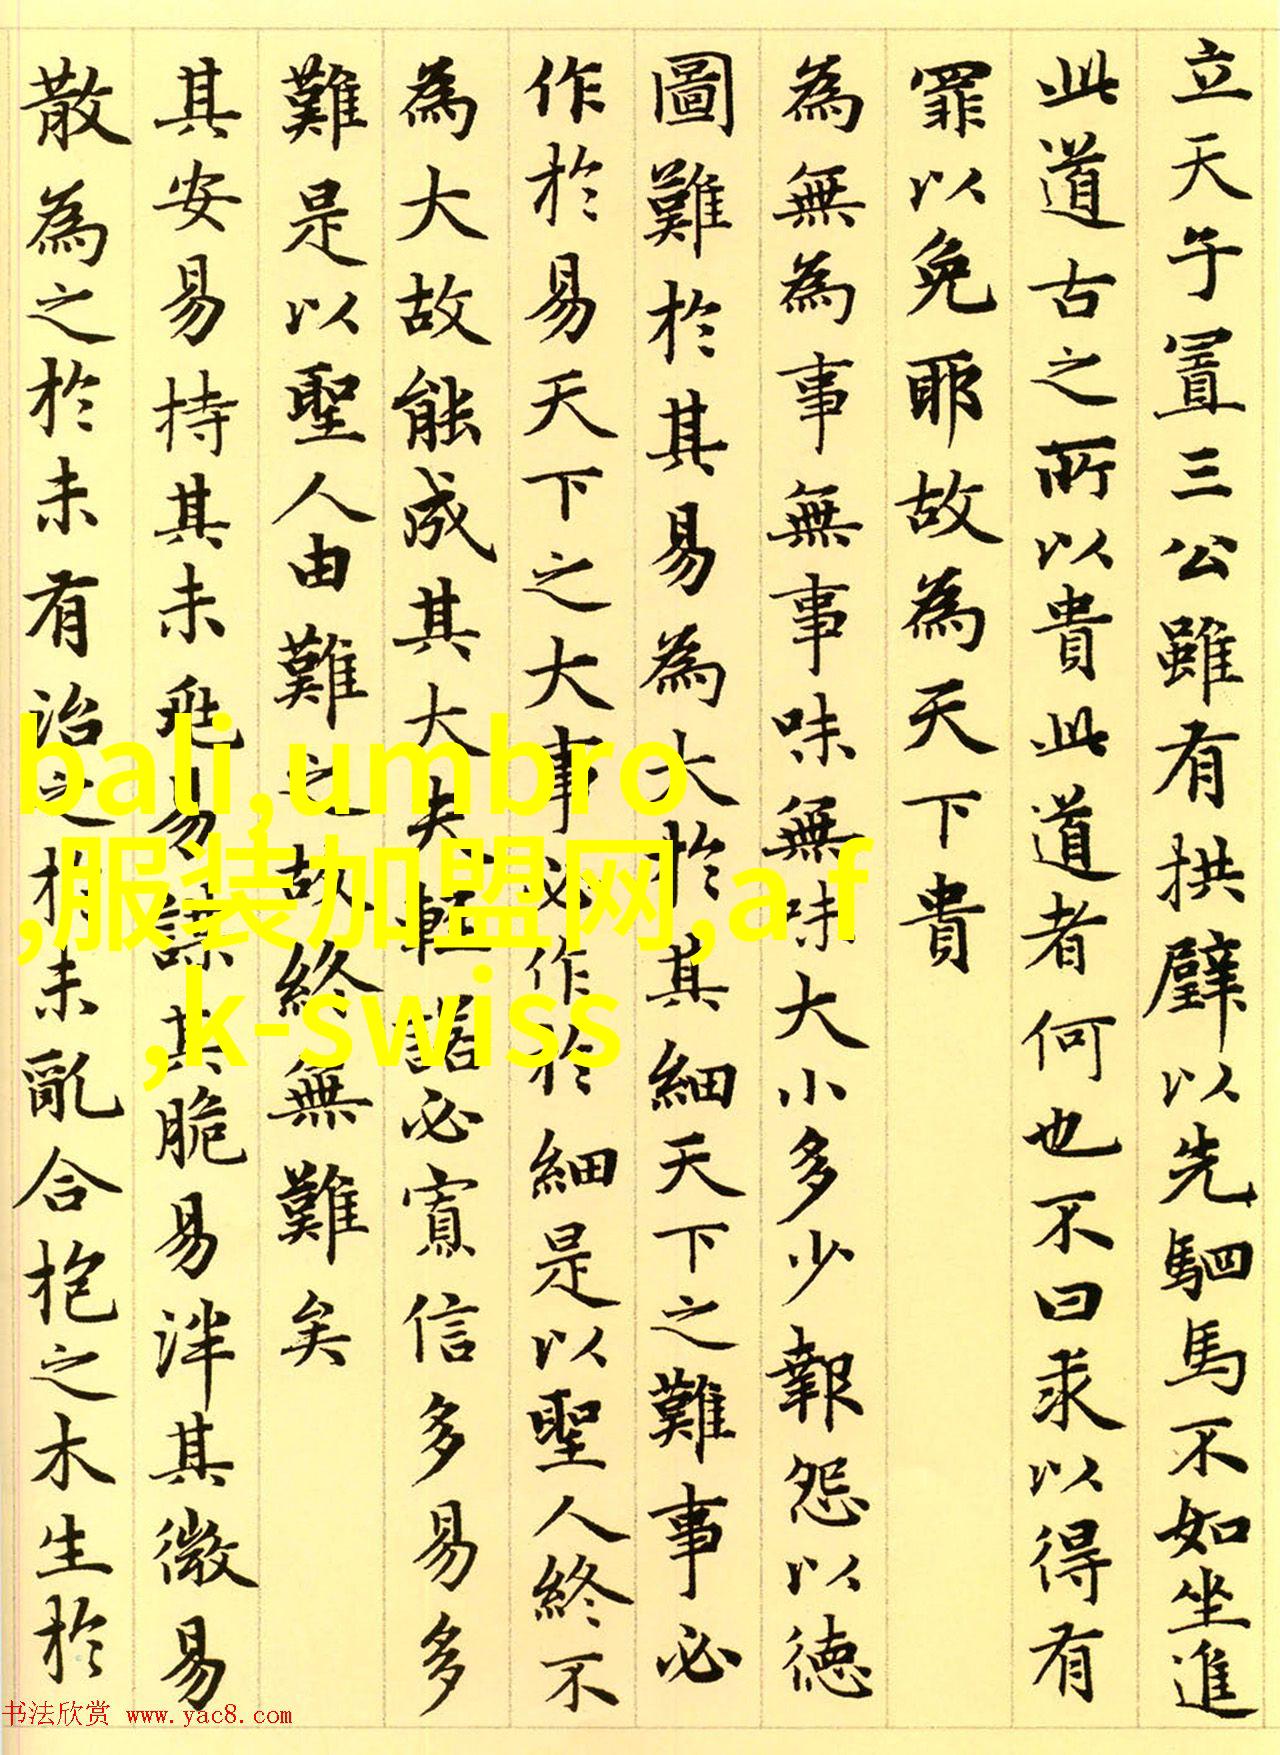 立天子置三公雖有拱璧以先駟馬不如坐進
此道古之所以貴此道者何也不曰求以得有
罪以免耶故為天下貴
為無為事無事味無味大小多少報怨以德
圖難於其易為大於其細天下之難事必
作於易天下之大事必作於細是以聖人終不
為大故能成其大夫輕諾必寡信多易多
難是以聖人由難之故終無難矣
其安易持其未兆易謀其脆易泮其微易
散為之於未有治之於未亂合抱之木生於
bali,umbro
,服装加盟网,a f
,k-swiss
书法欣赏 www.yac8.com